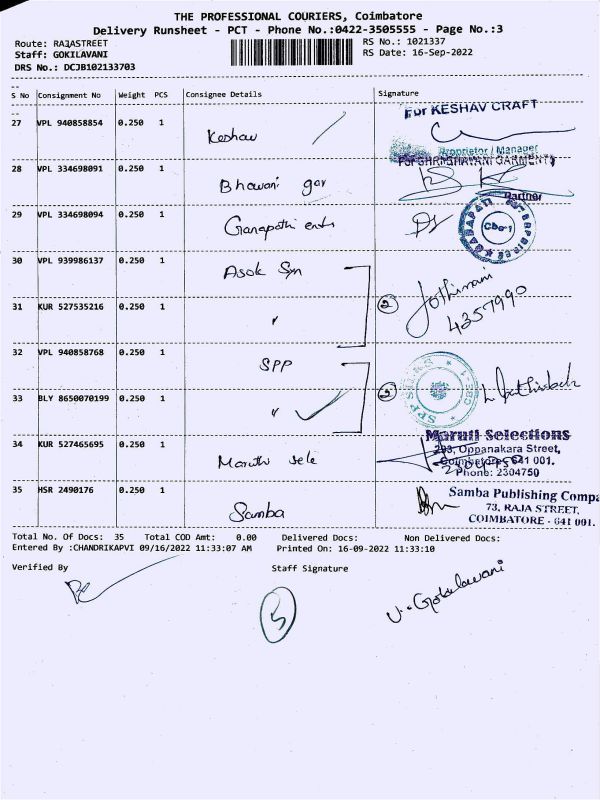 THE PROFESSIONAL COURIERS, Coimbatore
Delivery Runsheet - PCT - Phone No.:0422-3505555 - Page No.:3
Route: RAJASTREET
RS No.: 1021337
Staff: GOKILAVANI
RS Date: 16-Sep-2022
DRS No.: DCJB102133703
S No Consignment No Weight PCS Consignee Details Signature
27 VPL 940858854 0.250 1 Keshav
For KESHAV CRAFT
Proprietor / Manager
28 VPL 334698091 0.250 1 Bhavani gar
For SHRI BHAVANI GARMENTS
Partner
29 VPL 334698094 0.250 1 Ganapathi ents
GANAPATI ENTERPRISES
Cbe-1
30 VPL 939986137 0.250 1 Asok Syn
31 KUR 527535216 0.250 1 "
2 Jothimani
4357990
32 VPL 940858768 0.250 1 SPP
33 BLY 8650070199 0.250 1 "
2
SPP SILKS
CBE-1
34 KUR 527465695 0.250 1 Maruthi sele
Maruti Selections
293, Oppanakara Street,
Coimbatore - 641 001.
Phone: 2304750
35 HSR 2490176 0.250 1 Samba
Samba Publishing Compa
73, RAJA STREET,
COIMBATORE - 641 001.
Total No. Of Docs: 35 Total COD Amt: 0.00 Delivered Docs: Non Delivered Docs:
Entered By :CHANDRIKAPVI 09/16/2022 11:33:07 AM Printed On: 16-09-2022 11:33:10
Verified By Staff Signature
V. Gokilavani